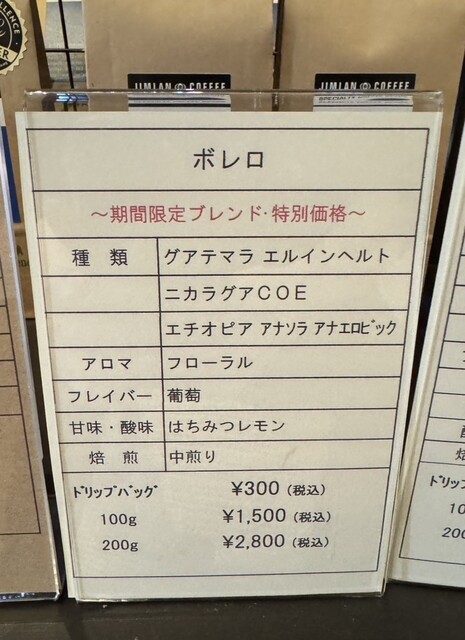 JIMLAN COFFEE
JIMLAN COFFEE
ボレロ
～期間限定ブレンド・特別価格～
種 類 グアテマラ エルインヘルト
ニカラグアCOE
エチオピア アナソラ アナエロビック
アロマ フローラル
フレイバー 葡萄
甘味・酸味 はちみつレモン
焙 煎 中煎り
ドリップバッグ ¥300（税込）
100g ¥1,500（税込）
200g ¥2,800（税込）
ドリップ
10
200